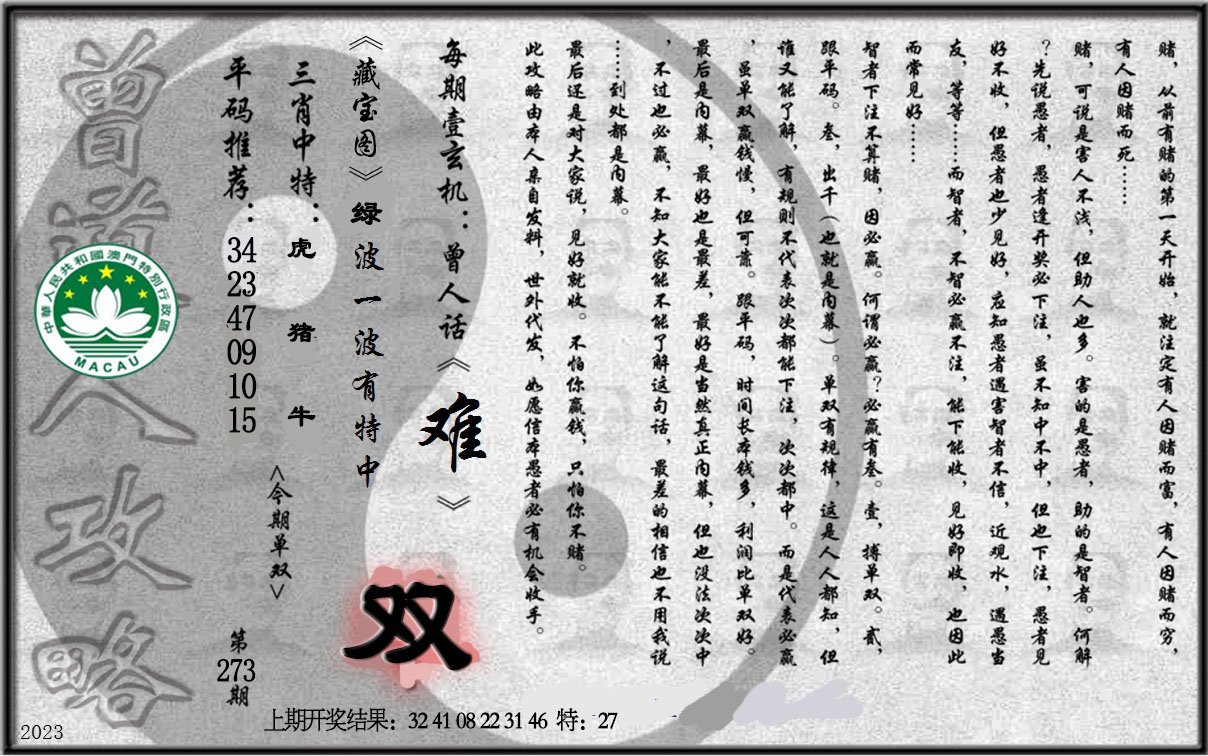 赌，从前有赌的第一天开始，就注定有人因赌而富，有人因赌而穷，
有人因赌而死……
赌，可说是害人不浅，但助人也多。害的是愚者，助的是智者。何解
？先说愚者，愚者逢开奖必下注，虽不知中不中，但也下注，愚者见
好不收，但愚者也少见好，应知愚者遇害智者不信，近观水，遇愚当
友，等等……而智者，不智必赢不注，能下能收，见好即收，也因此
而常见好……
智者下注不算赌，因必赢。何谓必赢？必赢有叁。壹，搏单双。贰，
跟平码。叁，出千（也就是内幕）。单双有规律，这是人人都知，但
谁又能了解，有规则不代表次次都能下注，次次都中。而是代表必赢
，虽单双赢钱慢，但可靠。跟平码，时间长本钱多，利润比单双好。
最后是内幕，最好也是最差，最好是当然真正内幕，但也没法次次中
，不过也必赢，不知大家能不能了解这句话，最差的相信也不用我说
……到处都是内幕。
最后还是对大家说，见好就收。不怕你赢钱，只怕你不赌。
此攻略由本人亲自发料，世外代发，如愿信本愚者必有机会收手。
每期壹玄机：曾人话《难》
《藏宝图》绿波一波有特中
双
三肖中特：虎 猪 牛
<今期单双>
平码推荐：34 23 47 09 10 15
第273期
曾道人攻略
中華人民共和國澳門特別行政區
MACAU
上期开奖结果：32 41 08 22 31 46 特：27
2023